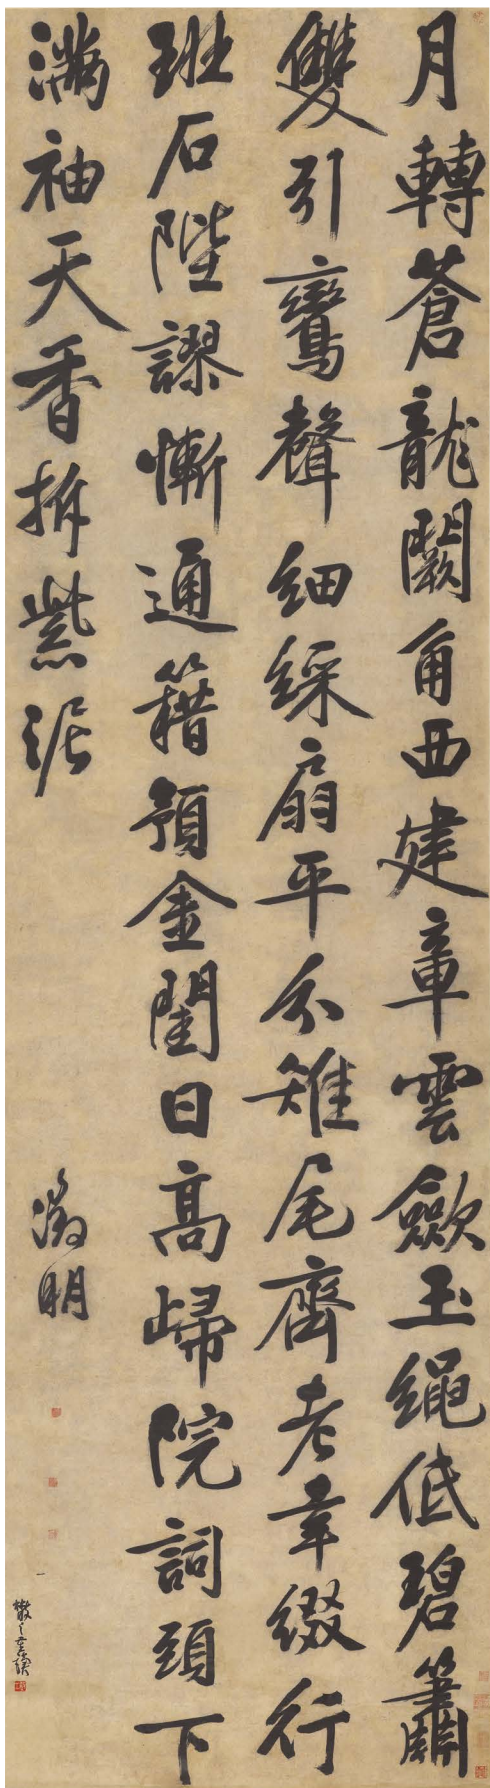 月轉蒼龍闕角西建章雲歛玉繩低碧簫
雙引鸞聲細綵扇平分雉尾齊老幸綴行
班石陛謬慚通籍預金閨日高歸院詞頭下
滿袖天香拆紫泥
徵明